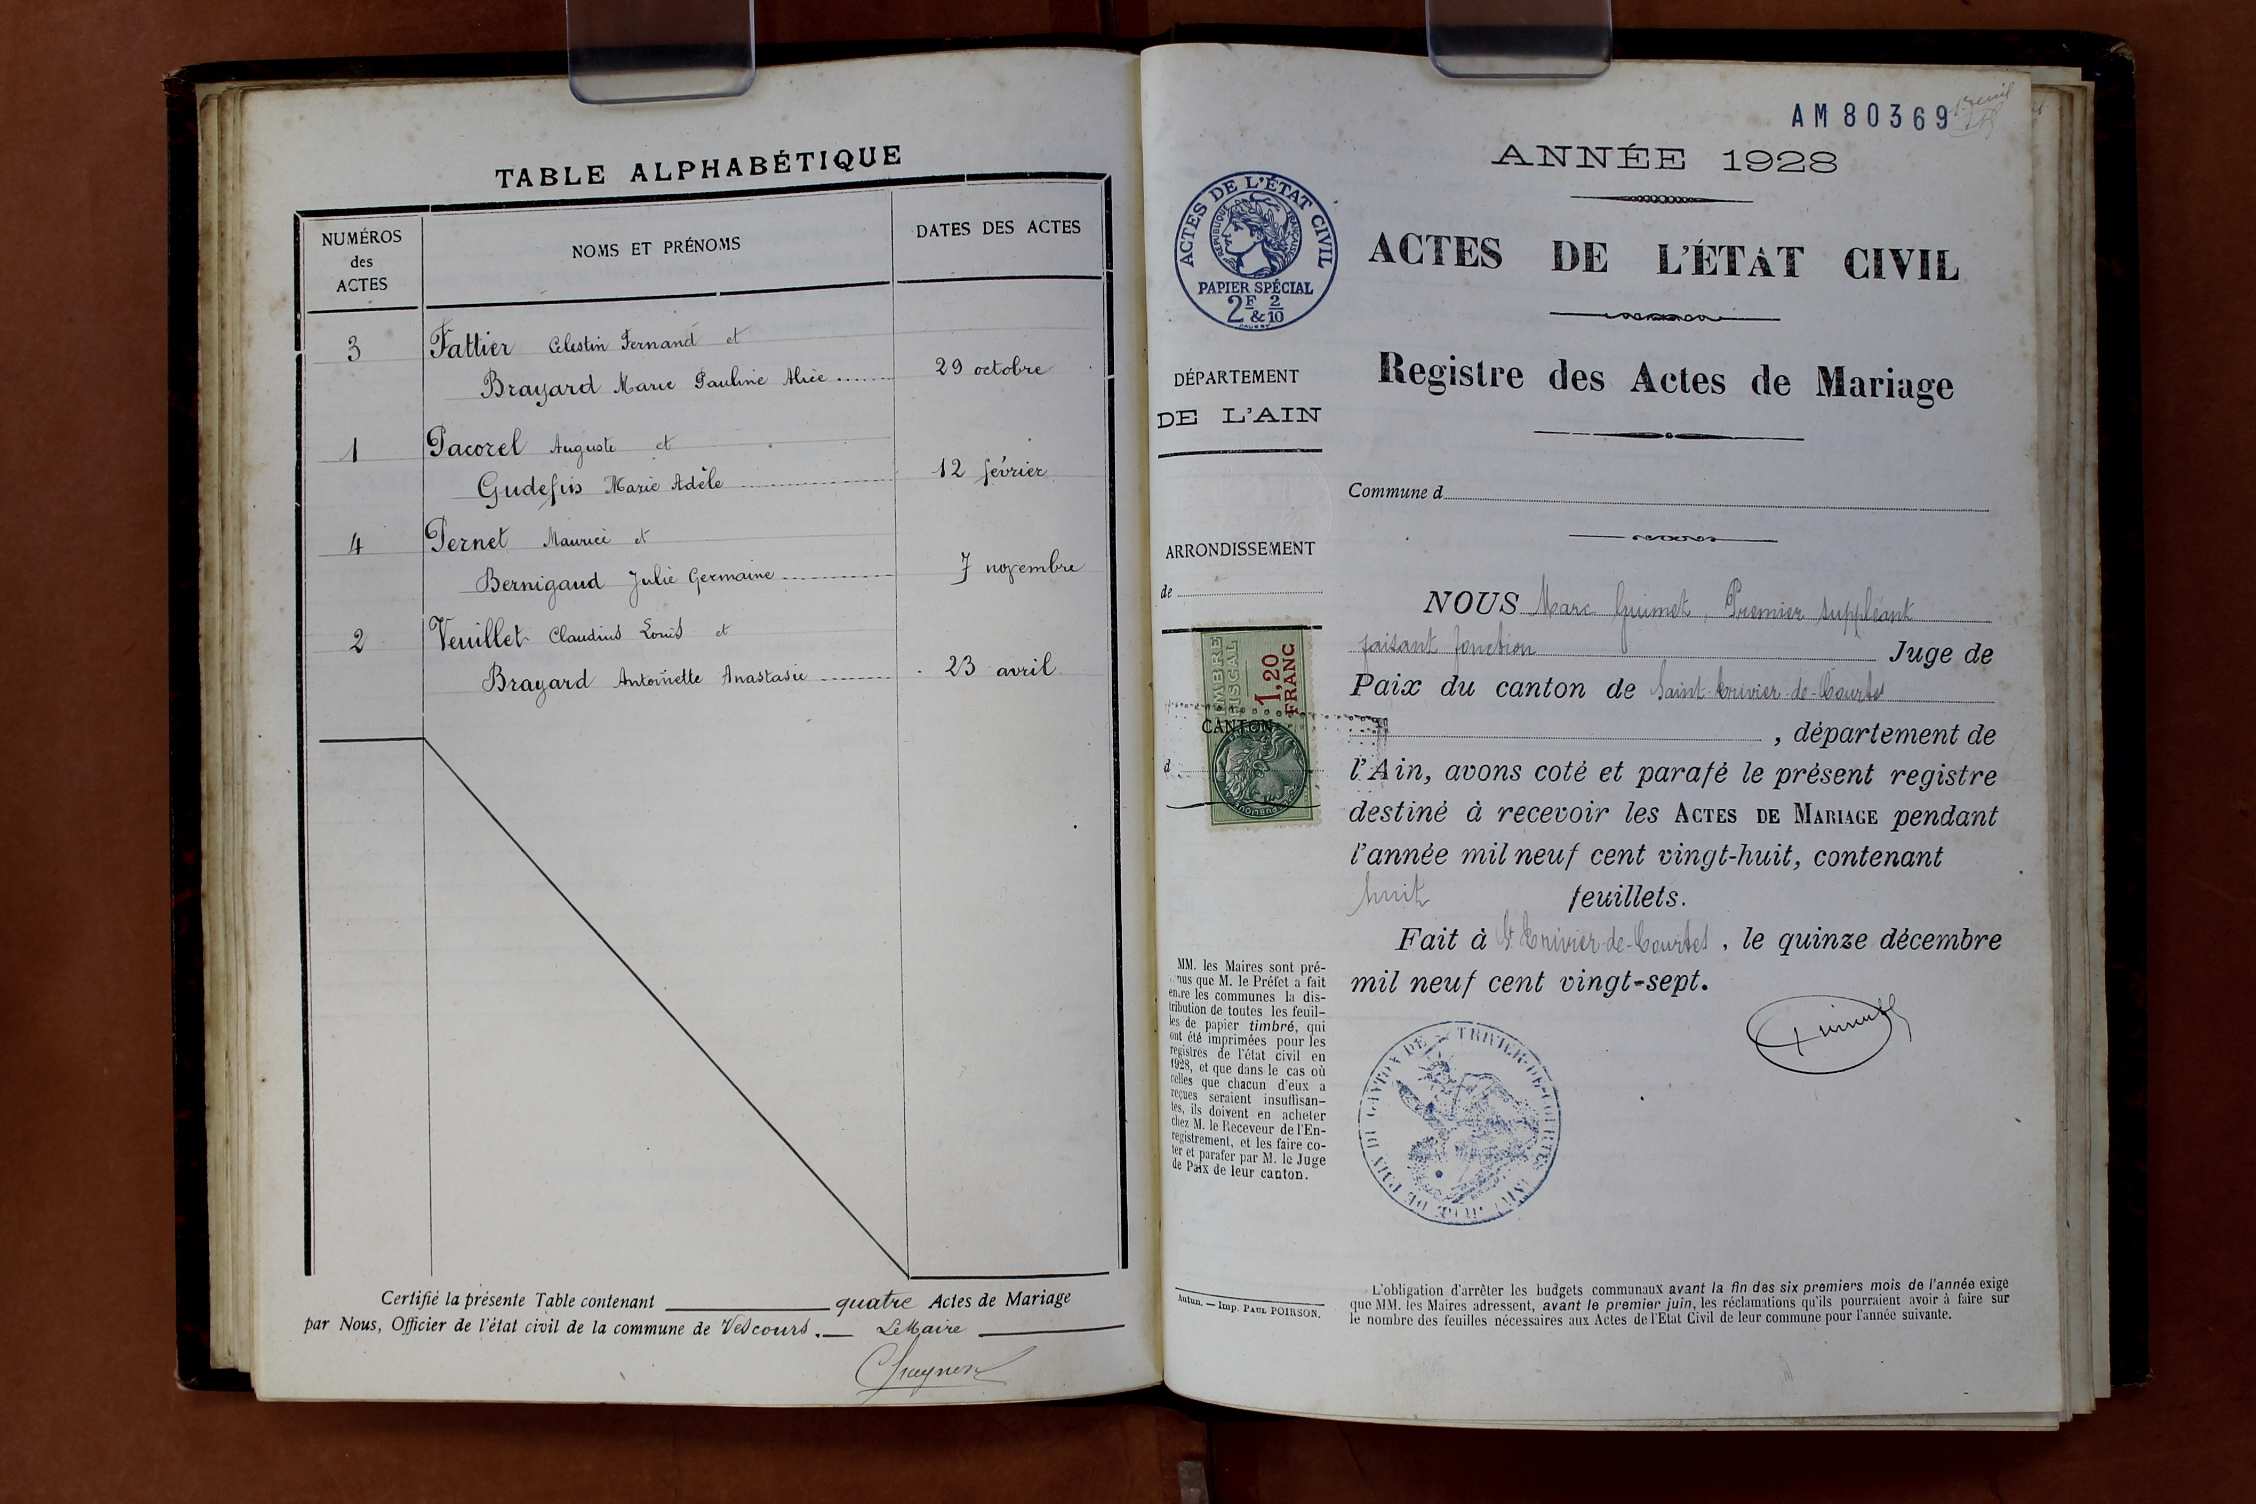 TABLE ALPHABÉTIQUE
NUMÉROS
des
ACTES
NOMS ET PRÉNOMS
DATES DES ACTES
3 Fattier Célestin Fernand et
Brayard Marie Pauline Alice 29 octobre
1 Pacorel Auguste et
Gudefin Marie Adèle 12 février
4 Pernet Maurice et
Bernigaud Julie Germaine 7 novembre
2 Veuillet Claudius Louis et
Brayard Antoinette Anastasie 23 avril
Certifié la présente Table contenant quatre Actes de Mariage
par Nous, Officier de l'état civil de la commune de Vescours. Le Maire
AM 80369
ANNÉE 1928
ACTES DE L'ÉTAT CIVIL
RÉPUBLIQUE FRANÇAISE
PAPIER SPÉCIAL
2F & 2/10
ACTES DE L'ÉTAT CIVIL
Registre des Actes de Mariage
DÉPARTEMENT
DE L'AIN
Commune d
ARRONDISSEMENT
de
TIMBRE
FISCAL
1,20
FRANC
CANTON
d
NOUS Marc Guimet, Premier suppléant
faisant fonction Juge de
Paix du canton de Saint-Trivier-de-Courtes
, département de
l'Ain, avons coté et parafé le présent registre
destiné à recevoir les ACTES DE MARIAGE pendant
l'année mil neuf cent vingt-huit, contenant
huit feuillets.
Fait à St Trivier-de-Courtes, le quinze décembre
mil neuf cent vingt-sept.
MM. les Maires sont pré-
nus que M. le Préfet a fait
entre les communes la dis-
tribution de toutes les feuil-
les de papier timbré, qui
ont été imprimées pour les
registres de l'état civil en
1928, et que dans le cas où
celles que chacun d'eux a
reçues seraient insuffisan-
tes, ils doivent en acheter
chez M. le Receveur de l'En-
registrement, et les faire co-
ter et parafer par M. le Juge
de Paix de leur canton.
Autun. — Imp. PAUL POIRSON.
L'obligation d'arrêter les budgets communaux avant la fin des six premiers mois de l'année exige
que MM. les Maires adressent, avant le premier juin, les réclamations qu'ils pourraient avoir à faire sur
le nombre des feuilles nécessaires aux Actes de l'Etat Civil de leur commune pour l'année suivante.